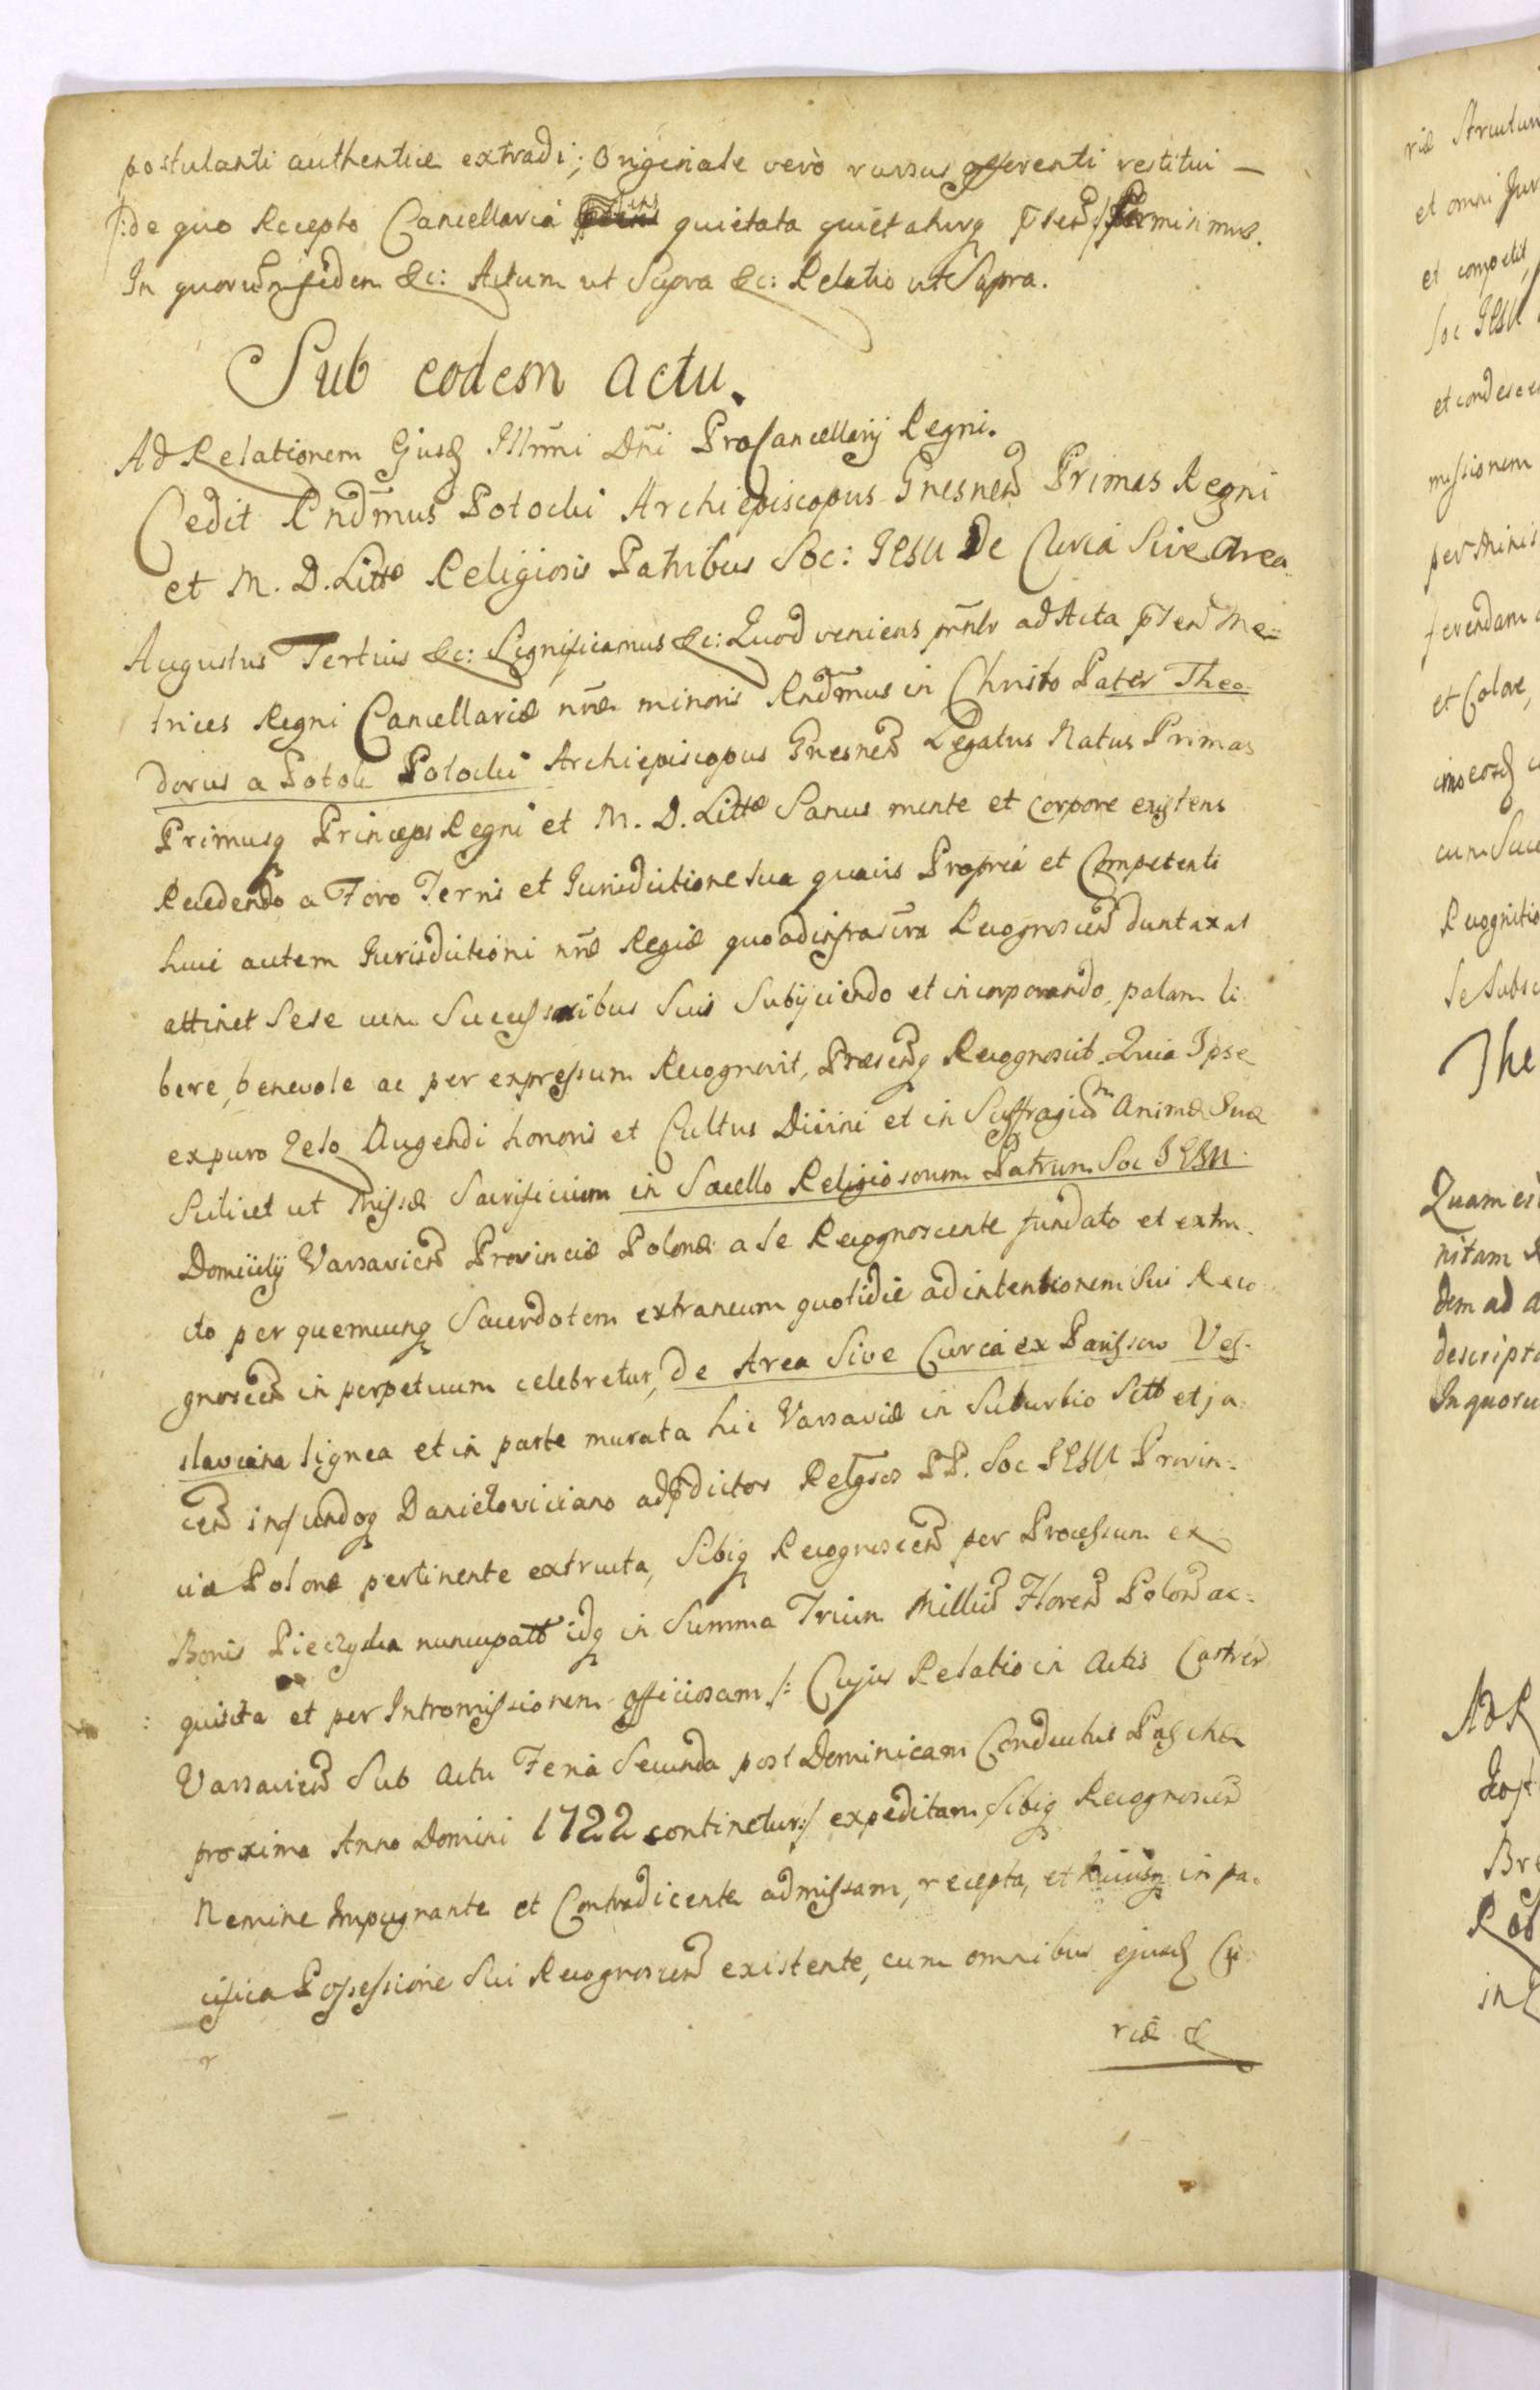 postulanti authenticè extradi; Originale verò rursus offerenti restitui —
/:de quo Recepto Cancellaria quietata quietaturq pnte permisimus.
In quorum fidem &c: Actum ut Supra &c: Relatio ut Supra.
Sub eodem actu.
Ad Relationem Ejusd Illrmi Dni ProCancellarij Regni.
Cedit Rndmus Potocki Archiepiscopus Gnesnen Primas Regni
et M. D. Littæ Religiosis Patribus Soc: JESU De Curia Sive Area
Augustus Tertius &c: Significamus &c: Quod veniens prnlr ad Acta pnten Me-
trices Regni Cancellariæ nræ minoris Rndmus in Christo Pater Theo-
dorus a Potok Potocki Archiepiscopus Gnesnen Legatus Natus Primas
Primusq Princeps Regni et M. D. Littæ Sanus mente et corpore existens
Recedendo a Foro Terris et Jurisdictione sua quavis Propria et Competenti
huic autem Jurisdictioni nræ Regiæ quoad infrascra Recognoscen duntaxat
attinet Sese cum Successoribus Suis Subijciendo et incorporando, palam li
bere, benevole ac per expressum Recognovit, Præsenq Recognoscit Quia Ipse
ex puro Zelo Augendi honoris et Cultus Divini et in Suffragium Animæ Suæ
Scilicet ut Missæ Sacrificium in Sacello Religiosorum Patrum Soc JESU
Domicilij Varsavien Provinciæ Polonæ a se Recognoscente fundato et extru-
cto per quemcunq Sacerdotem extraneum quotidie ad intentionem Sui Reco-
gnoscen in perpetuum celebretur, de Area Sive Curia ex Parisscw Ves-
slaviana lignea et in parte murata hic Varsaviæ in Suburbio Sitt et ja-
cen in fundoq Daniełoviciano ad pdictos Relgsos PP. Soc JESU Provin-
ciæ Polonæ pertinente extructa, Sibiq Recognoscen per Processum ex
Bonis Pieczyska nuncupatt idq in Summa Trium Milliu Floren Polon ac-
quisita et per Intromissionem officiosam /: Cujus Relatio in Actis Castren
Varsavien Sub Actu Feria Secunda post Dominicam Conductus Paschæ
proxima Anno Domini 1722 continetur:/ expeditam Sibiq Recognoscen
Nemine Impugnante et Contradicente admissam, recepta, et hucusq in pa-
cifica Possessione Sui Recognoscen existente, cum omnibus ejusd Cu-
riæ &
riæ
et omni Jur
et competit
Soc JESU
et condesce
missionem
per Minis
ferendam
et Colore,
imo eosd
cum Succ
Recognitio
Se Subsc
The
Quam
nitam
dem ad a
descript
In quoru
Ad R
Bre
in